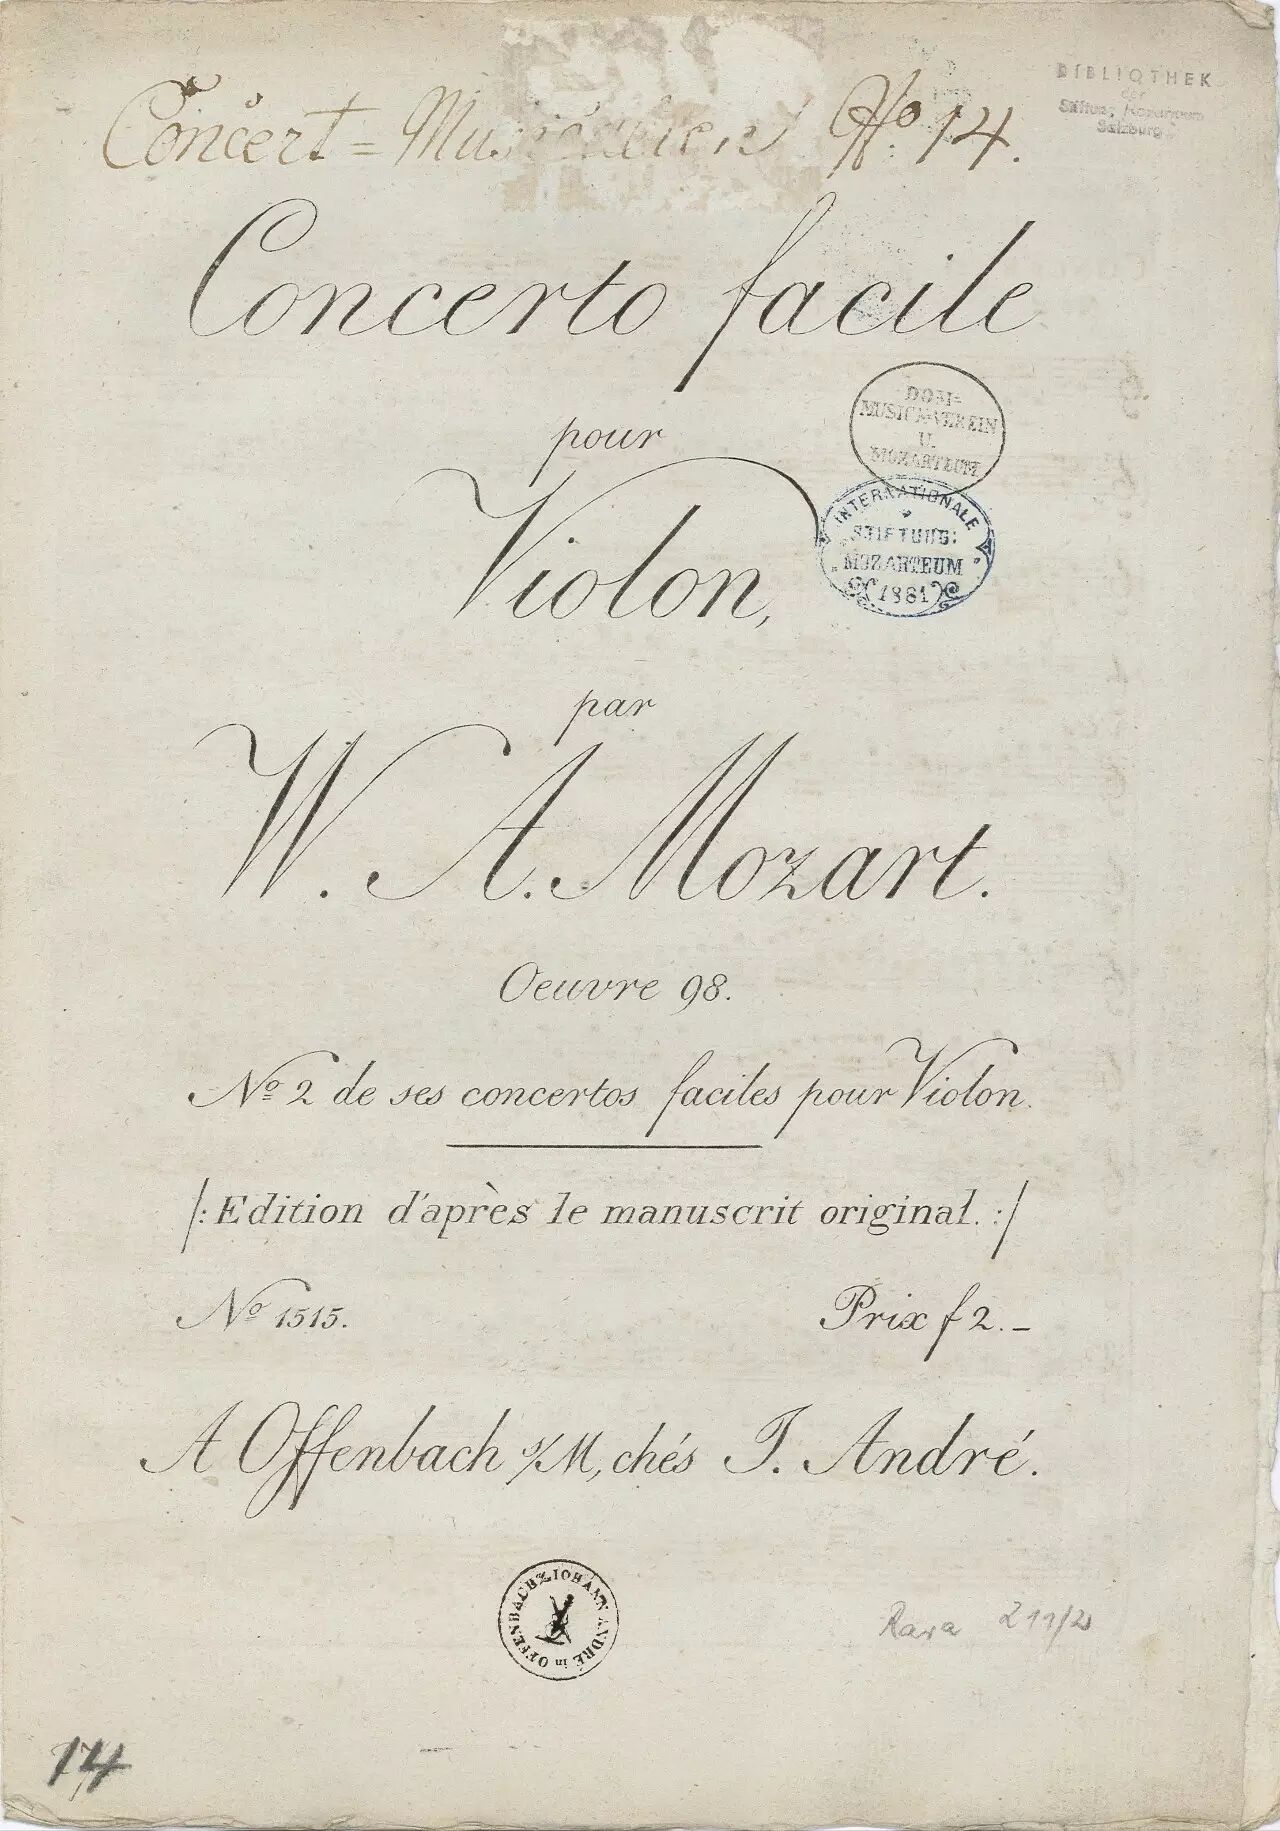 BIBLIOTHEK
der
Stiftung Mozarteum
Salzburg
Concert = Musicalien No 14.
Concerto facile
pour
Violon,
DOM=
MUSICK-VEREIN
U.
MOZARTEUM
INTERNATIONALE
STIFTUNG:
MOZARTEUM
1881
par
W. A. Mozart.
Oeuvre 98.
No 2 de ses concertos faciles pour Violon.
/: Edition d'après le manuscrit original. :/
No 1515.
Prix f 2. –
A Offenbach s/M, chés J. André.
JOHANN ANDRÉ in OFFENBACH
Rara 211/2
14